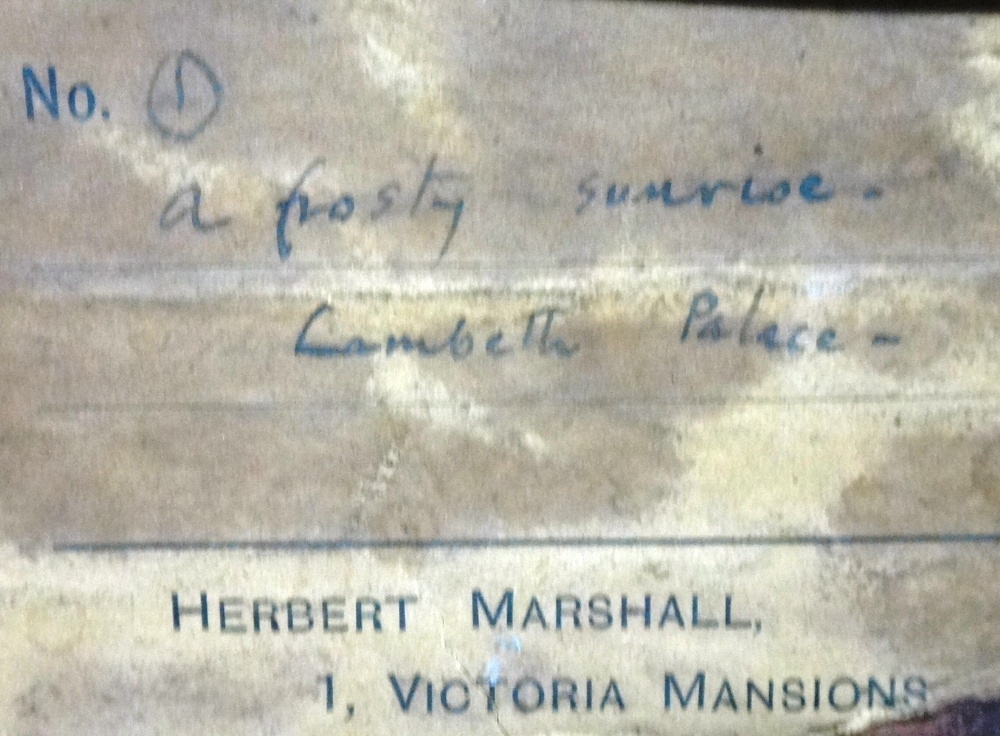 No. 1
a frosty sunrise -
Lambeth Palace -
HERBERT MARSHALL,
1, VICTORIA MANSIONS